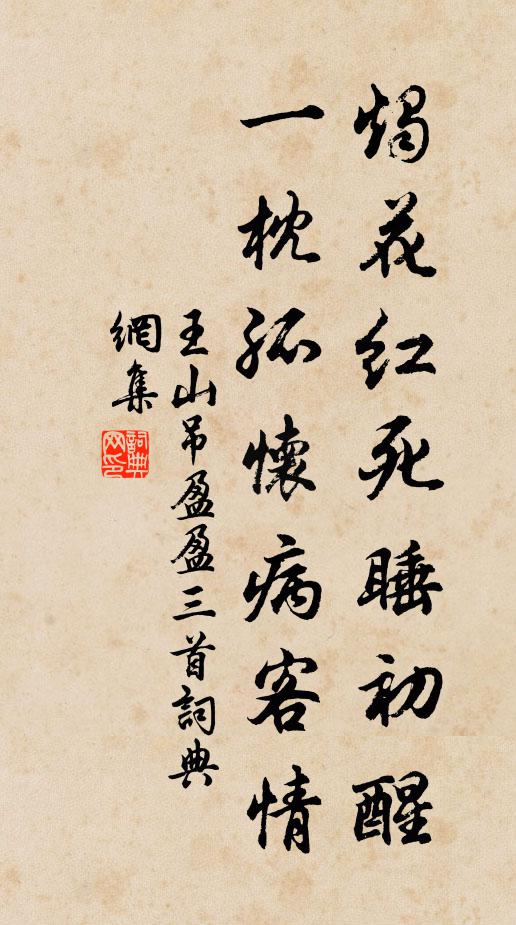 燭花紅死睡初醒
一枕孤懷病客情
王山吊盈盈三首詞典
網集
詞典网印